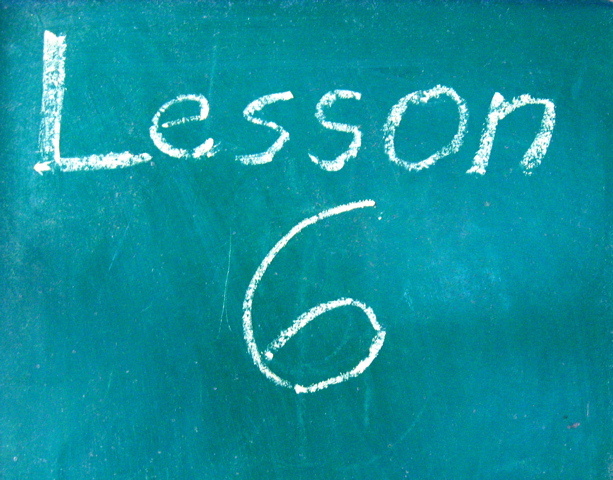 Lesson
6